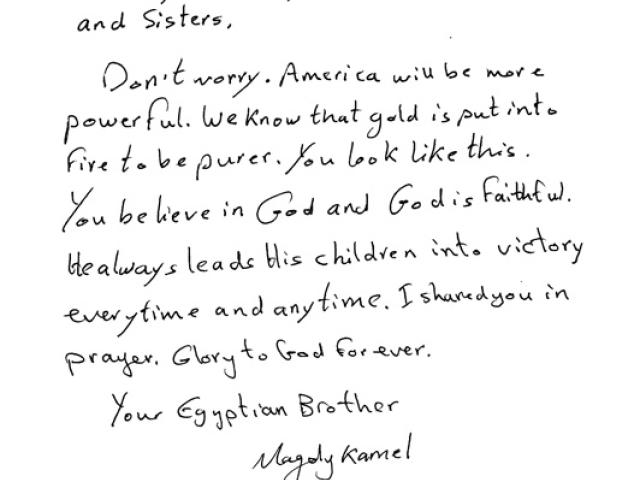 and Sisters,
Don't worry. America will be more
powerful. We know that gold is put into
fire to be purer. You look like this.
You believe in God and God is faithful.
He always leads His children into victory
everytime and anytime. I shared you in
prayer. Glory to God for ever.
Your Egyptian Brother
Magdy Kamel